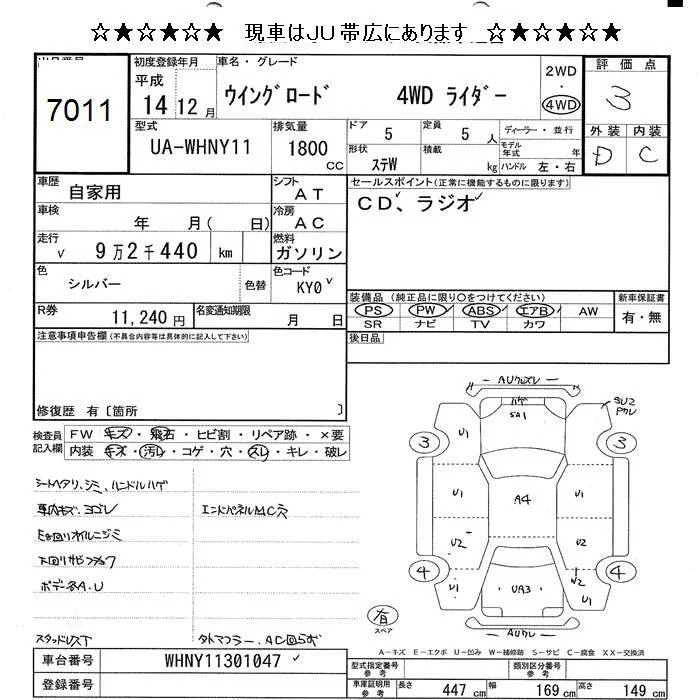 ☆★☆★☆★ 現車はJU帯広にあります ☆★☆★☆★
7011
初度登録年月
平成
14 12 月
車名・グレード
ウイングロード 4WD ライダー
2WD
・
4WD
評価点
3
外装 内装
D C
型式
UA-WHNY11
排気量
1800
CC
ドア 5
定員 5 人
ディーラー・並行
モデル年式 年
形状 ステW
積載 kg
ハンドル 左・右
車歴 自家用
シフト AT
セールスポイント(正常に機能するものに限ります)
CD、ラジオ
車検 年 月( 日)
冷房 AC
走行 9万2千440 km
燃料 ガソリン
色 シルバー 色替
色コード KY0
装備品(純正品に限り○をつけてください)
新車保証書
PS PW ABS エアB AW
有・無
SR ナビ TV カワ
R券 11,240 円
名変通知期限 月 日
注意事項申告欄(不具合内容等は具体的に記入して下さい)
後日品
修復歴 有〔箇所 〕
検査員記入欄
FW キズ・飛石・ヒビ割・リペア跡・×要
内装 キズ・汚レ・コゲ・穴・スレ・キレ・破レ
シートヘタリ、シミ、ハンドルハゲ
車内キズ、ヨゴレ
エンドパネルMC欠
ボデー各A.U
AUクルズレ
ハゲ
SA1
3
U1
3
U1
U1
A4
U1
U2
U2
4
U1
UA3
U2
U1
4
有
スペア
A-キズ E-エクボ U-凹み W-補修跡 S-サビ C-腐食 XX-交換済
車台番号 WHNY11301047
登録番号
型式指定番号
参考
類別区分番号
参考
車庫証明用
参考
長さ 447 cm 幅 169 cm 高さ 149 cm